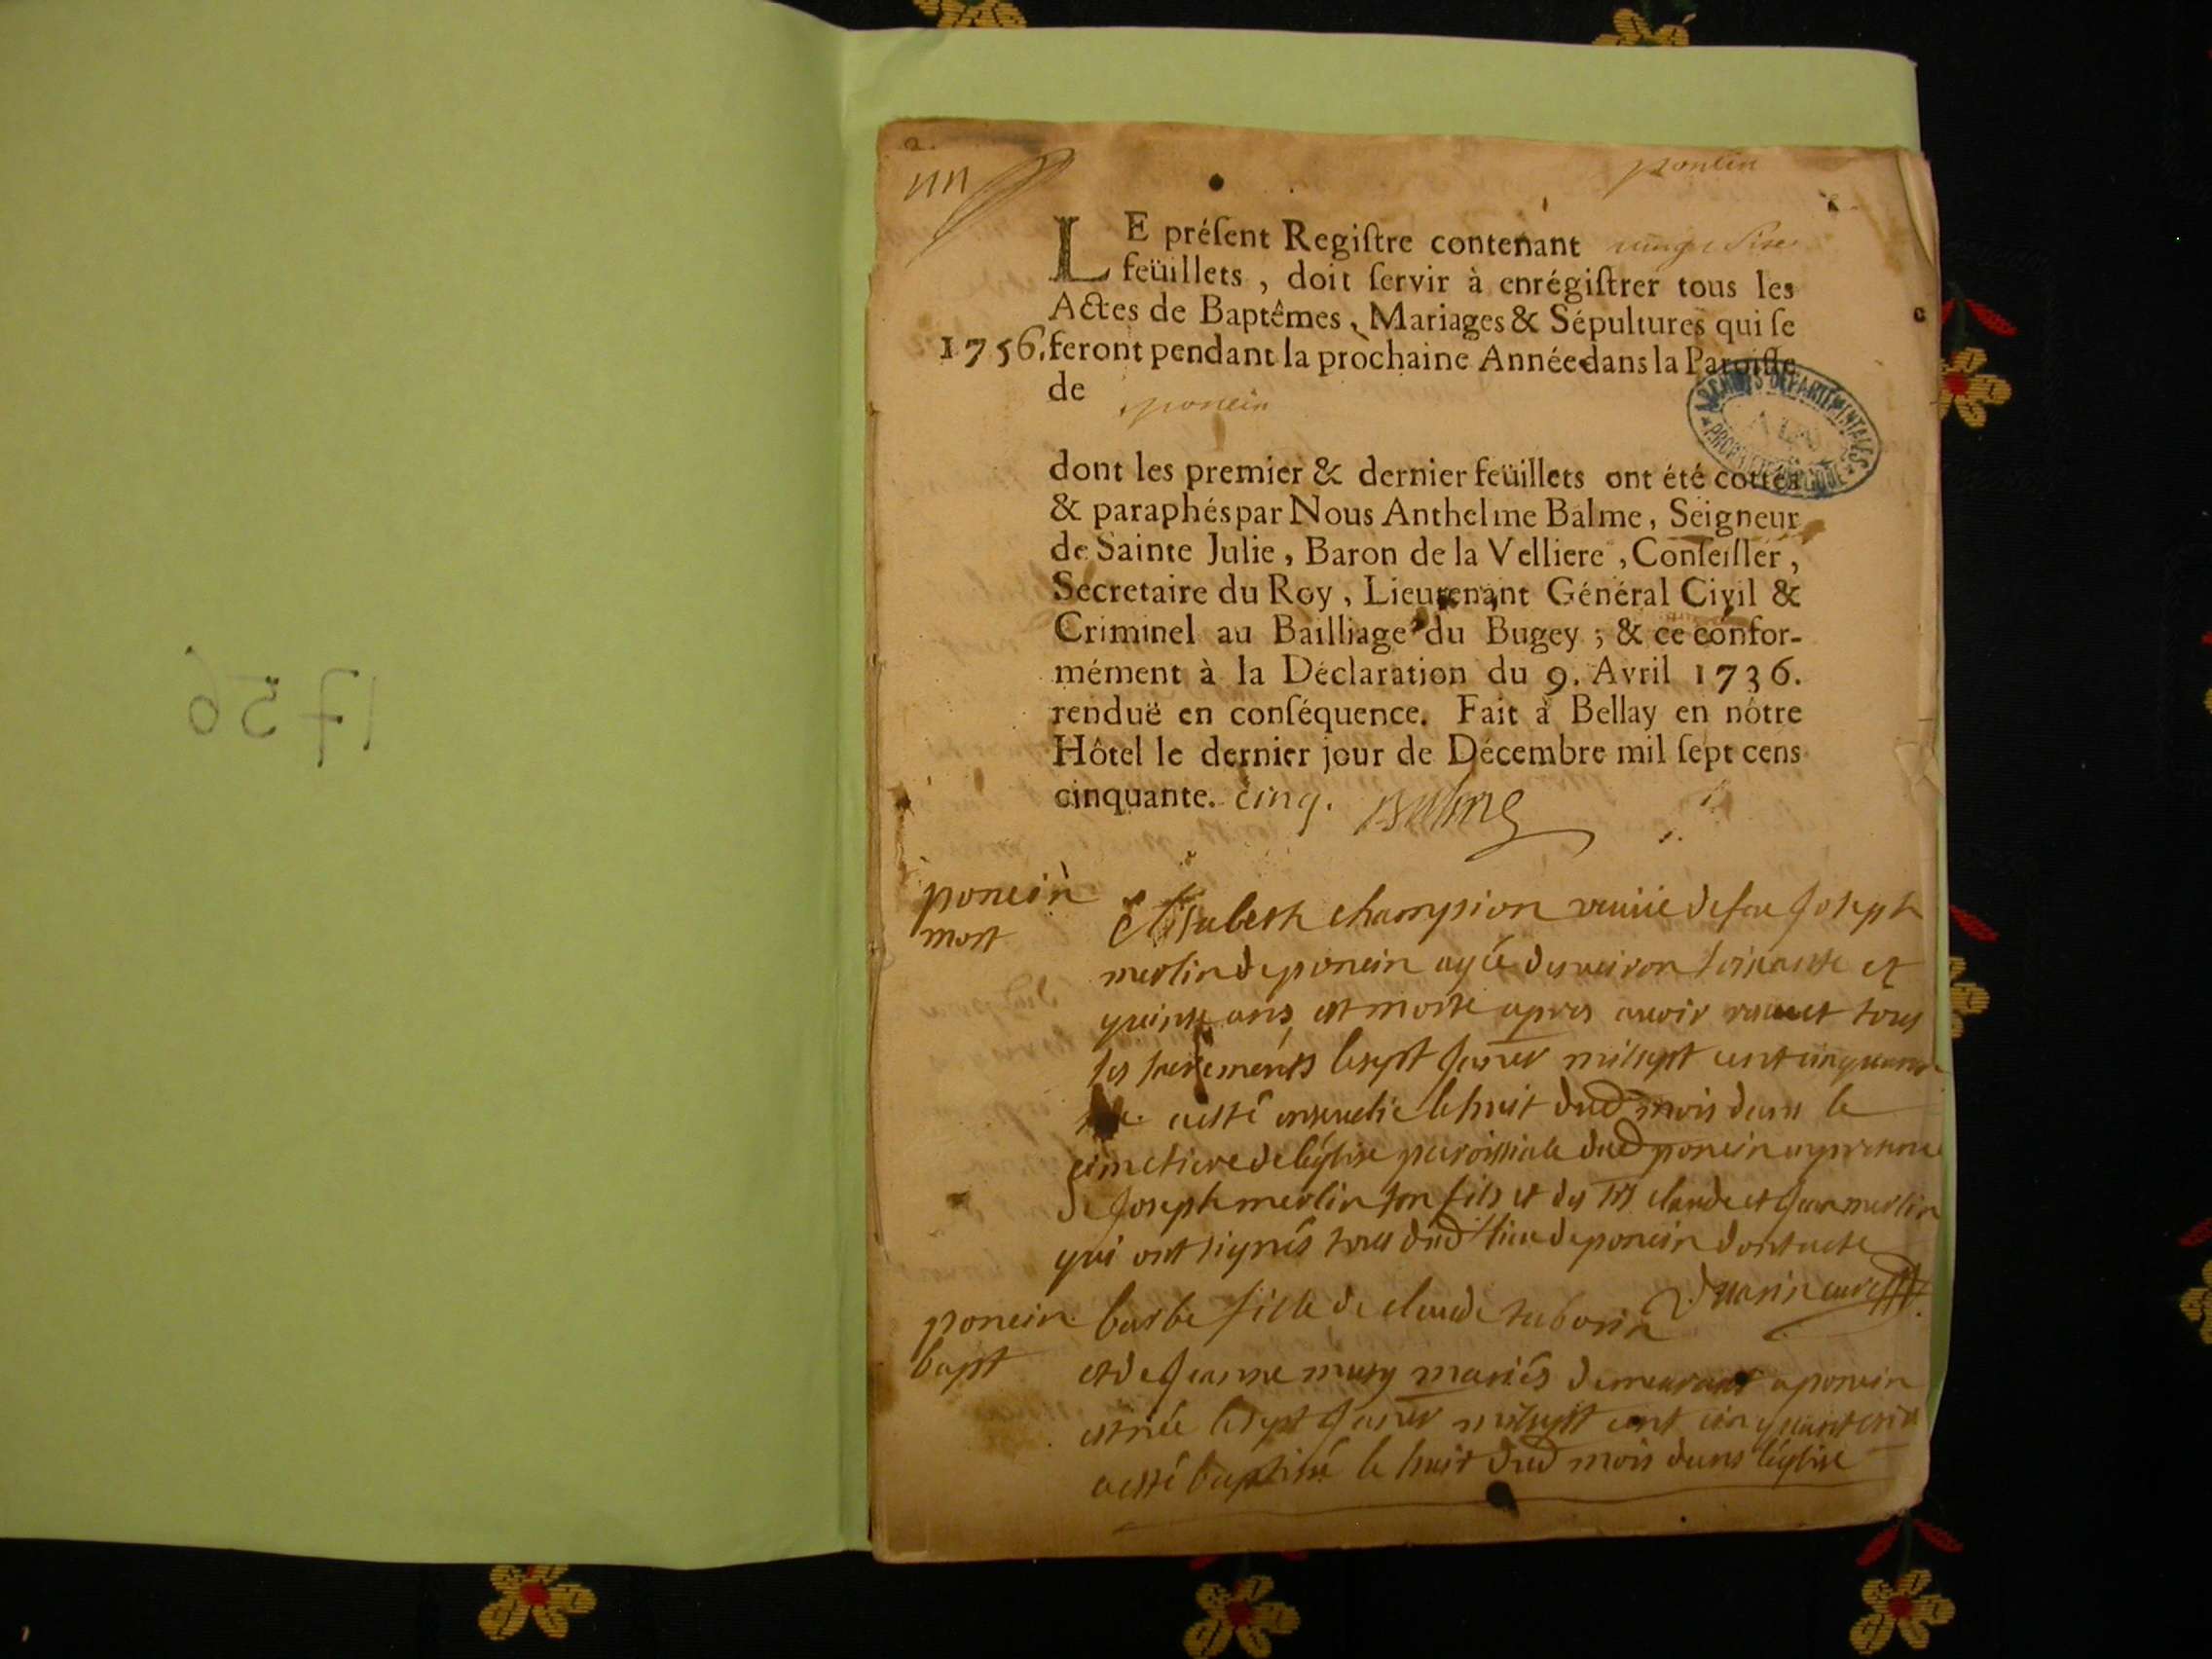 1756
poncin
LE préſent Regiſtre contenant vingt Sixe
feüillets, doit ſervir à enrégiſtrer tous les
Actes de Baptêmes, Mariages & Sépultures qui ſe
1756. feront pendant la prochaine Année dans la Paroiſſe
de poncin
ARCHIVES DÉPARTEMENTALES
AIN
dont les premier & dernier feüillets ont été cottés
& paraphés par Nous Anthelme Balme, Seigneur
de Sainte Julie, Baron de la Velliere, Conſeiller,
Secretaire du Roy, Lieutenant Général Civil &
Criminel au Bailliage du Bugey ; & ce confor-
mément à la Déclaration du 9. Avril 1736.
renduë en conſéquence. Fait à Bellay en nôtre
Hôtel le dernier jour de Décembre mil ſept cens
cinquante. cinq. Balme
poncin
mort
Elisabeth champion veuve de feu Joseph
merlin de poncin agée denviron soixante et
quinze ans est morte apres avoir receut tous
ses sacrements le sept Janer mil sept cent cinquante
a esté ensevelie le huit dud mois dans le
cimetiere de leglise paroissiale dud poncin en presence
de Joseph merlin son fils et des srs claude et Jean merlin
qui ont signés tous dud lieu de poncin dont acte
poncin
bapt
barbe fille de claude taborin
et de Jeanne mury mariés demeurant a poncin
est née le sept Janer mil sept cent cinquante six
a esté baptisé le huit dud mois dans léglise